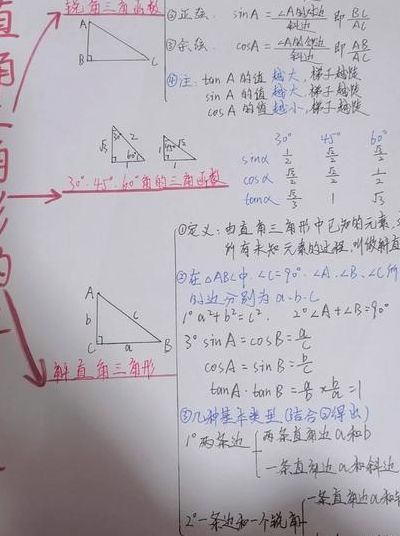 直角三角形的
锐角三角函数
A
B
C
②正弦. sinA = ∠A的对边/斜边 即 BC/AC
③余弦. cosA = ∠A的邻边/斜边 即 AB/AC
④注: tan A 的值越大, 梯子越陡
sin A 的值越大, 梯子越陡
cos A 的值越小, 梯子越陡
30° 2 √3 60° 1
45° √2 1 1
30° 45° 60°
sinα 1/2 √2/2 √3/2
cosα √3/2 √2/2 1/2
tanα √3/3 1 √3
30°·45°·60°角的三角函数
①定义: 由直角三角形中已知的元素,
所有未知元素的过程, 叫做解直
②在△ABC中, ∠C=90°·∠A.∠B.∠C所
对的边分别为a·b·c
1° a²+b²=c². 2°∠A+∠B=90°
3° sinA = cosB = a/c
cosA = sinB = b/c
tanA · tanB = a/b × b/a = 1
A
b
c
C
a
B
解直角三角形
③几种基本类型 (结合②得出)
1° 两条边
两条直角边a和b
一条直角边a和斜边
2° 一条边和一个锐角
一条直角边a和锐